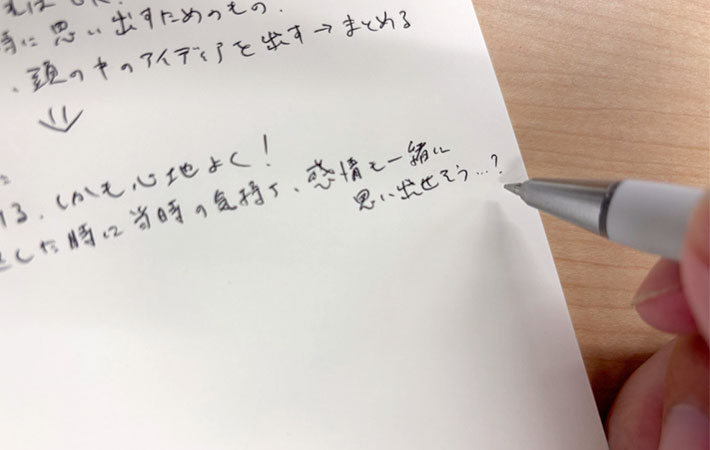 時に思い出すためのもの.
、頭の中のアイディアを出す→まとめる
⇓
る、しかも心地よく!
した時に当時の気持ち、感情も一緒に
思い出せそう…?